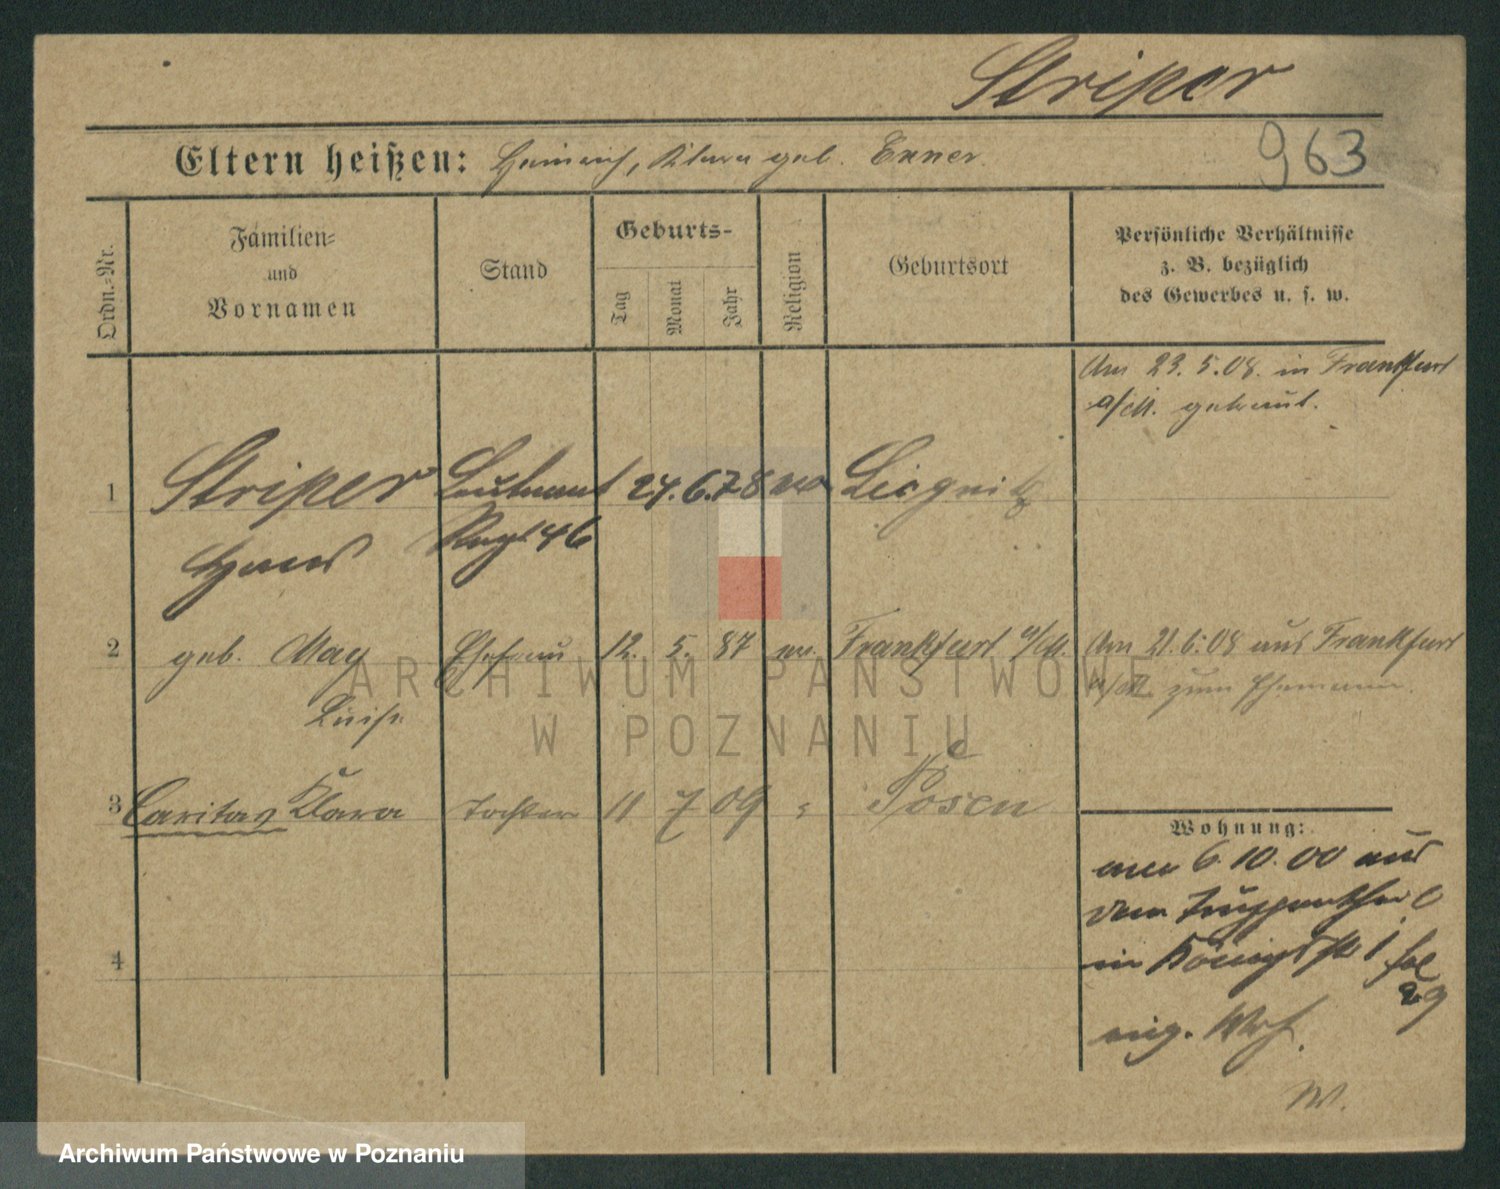 Striper
Eltern heißen: Heinrich, Klara geb. Exner.
963
Ordn.=Nr.
Familien=
und
Vornamen
Stand
Geburts-
Tag
Monat
Jahr
Religion
Geburtsort
Persönliche Verhältnisse
z. B. bezüglich
des Gewerbes u. s. w.
Am 23.5.08. in Frankfurt
a/M. getraut.
1 Striper Leutnant 24.6.78 ev Liegnitz
Hans Regt 46
2 geb. May Ehefrau 12. 5. 87 ev. Frankfurt a/M. Am 21.6.08 aus Frankfurt
Luise a/M. zum Ehemann.
3 Caritas Klara Tochter 11 7 09 = Posen
Wohnung:
6.10.00 aus
dem Truppentheil
in
29
4
W.
ARCHIWUM PAŃSTWOWE
W POZNANIU
Archiwum Państwowe w Poznaniu